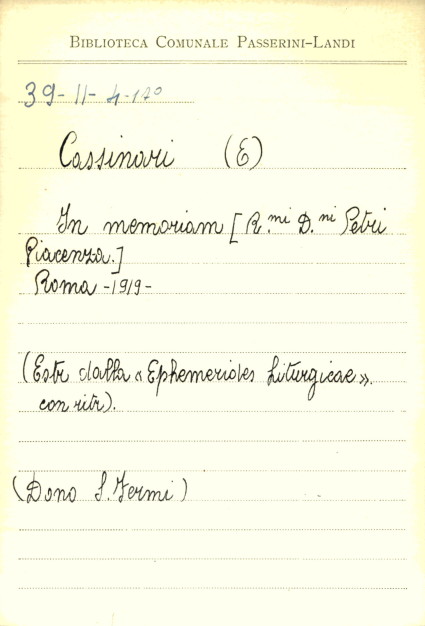 BIBLIOTECA COMUNALE PASSERINI-LANDI
39-11-4-170
Cassinari (E)
In memoriam [R.mi D.ni Petri
Piacenza.]
Roma -1919-
(Estr dalla « Ephemerides Liturgicae ».
con ritr).
(Dono S. Fermi)